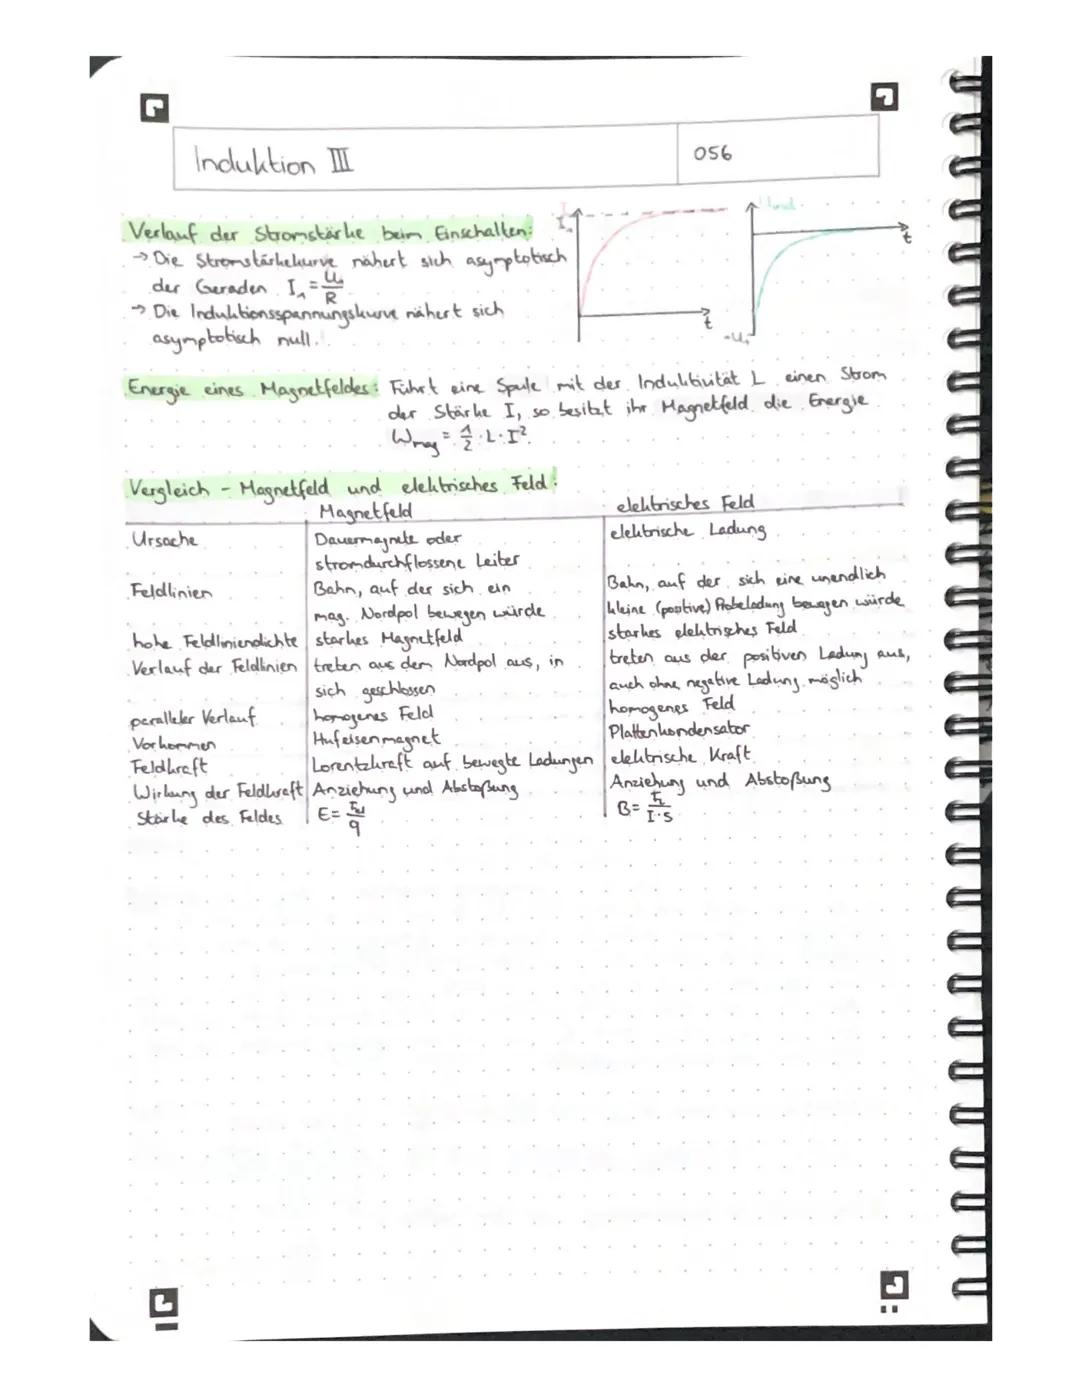 Induktion III
056
Verlauf der Stromstärke beim Einschalten:
→ Die Stromstärkekurve nähert sich asymptotisch
der Geraden I₁ = U₁/R
→ Die Induktionsspannungskurve nähert sich
asymptotisch null.
I
I₁
t
Uind
t
-U₁
Energie eines Magnetfeldes: Führt eine Spule mit der Induktivität L einen Strom
der Stärke I, so besitzt ihr Magnetfeld die Energie
Wmag = 1/2 · L · I²
Vergleich - Magnetfeld und elektrisches Feld:
Magnetfeld elektrisches Feld
Ursache Dauermagnete oder elektrische Ladung
stromdurchflossene Leiter
Feldlinien Bahn, auf der sich ein Bahn, auf der sich eine unendlich
mag. Nordpol bewegen würde kleine (positive) Probeladung bewegen würde
hohe Feldliniendichte starkes Magnetfeld starkes elektrisches Feld
Verlauf der Feldlinien treten aus dem Nordpol aus, in treten aus der positiven Ladung aus,
sich geschlossen auch ohne negative Ladung möglich
paralleler Verlauf homogenes Feld homogenes Feld
Vorkommen Hufeisenmagnet Plattenkondensator
Feldkraft Lorentzkraft auf bewegte Ladungen elektrische Kraft
Wirkung der Feldkraft Anziehung und Abstoßung Anziehung und Abstoßung
Stärke des Feldes E = Fel/q B = FL/I·s